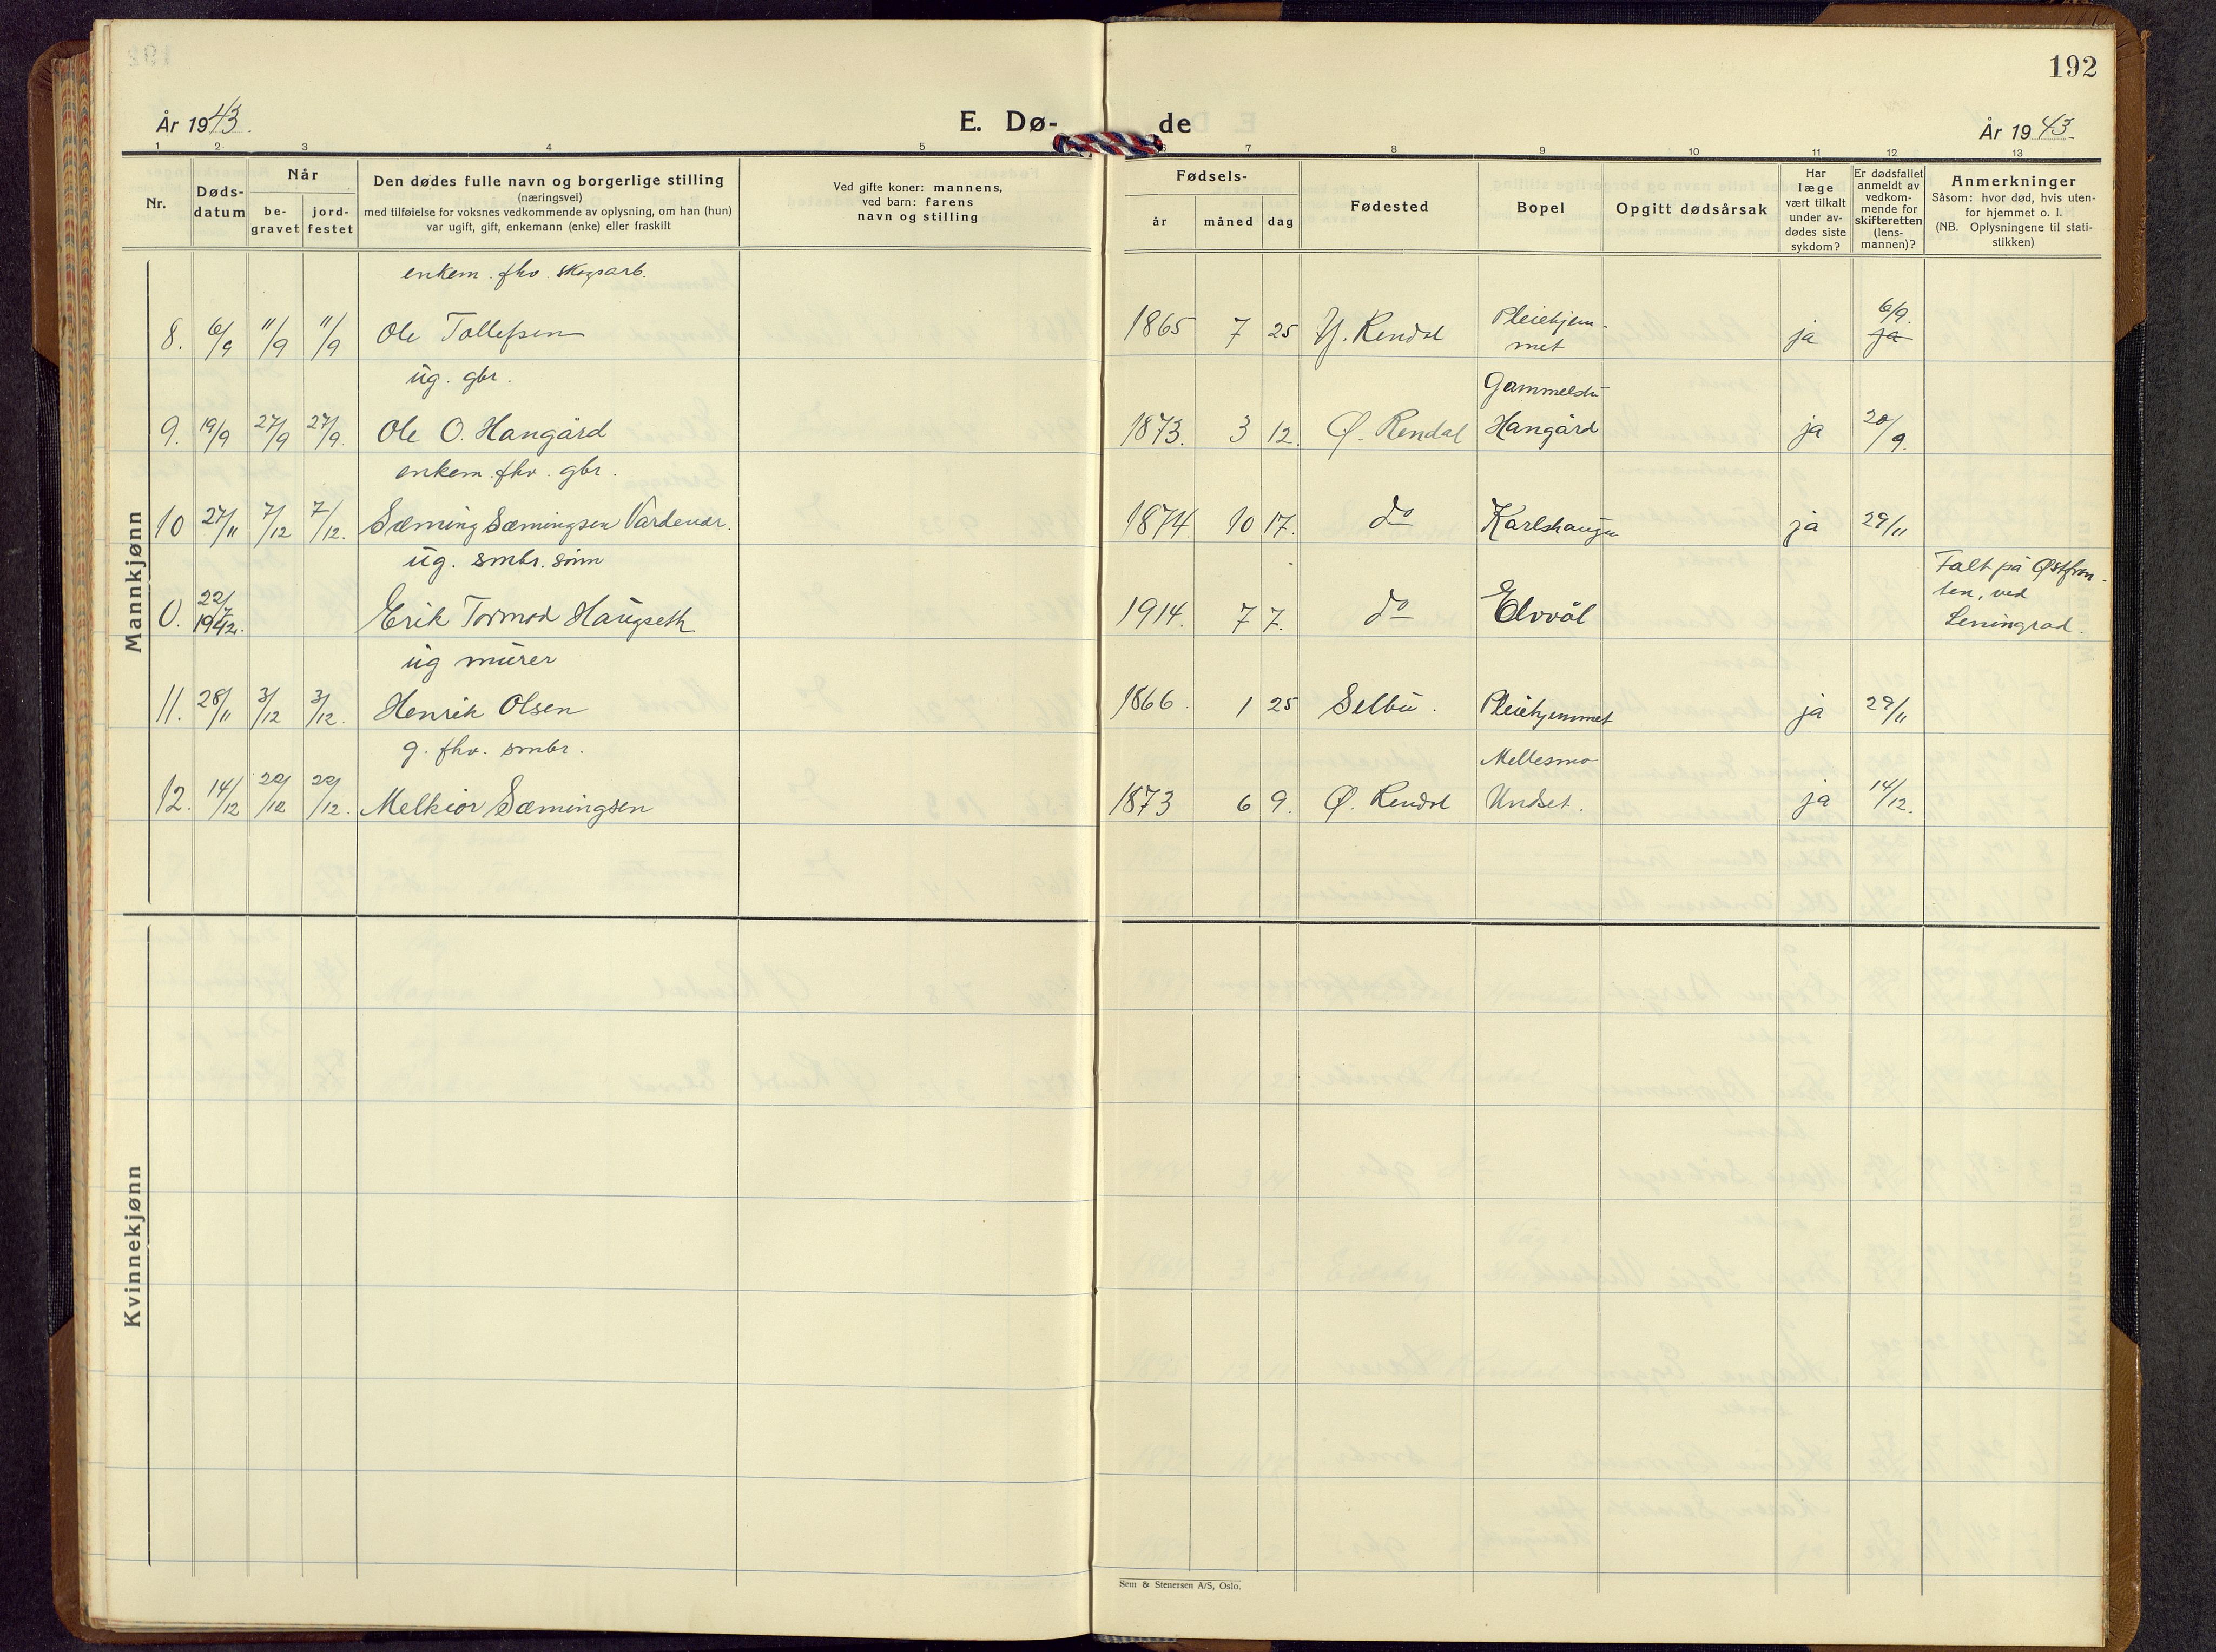 192
År 1943.
E. Dø-
de
År 1943.
1 2 3 4 5 6 7 8 9 10 11 12 13
Nr.
Døds-
datum
Når
be-
gravet
jord-
festet
Den dødes fulle navn og borgerlige stilling
(næringsvei)
med tilføielse for voksnes vedkommende av oplysning, om han (hun)
var ugift, gift, enkemann (enke) eller fraskilt
Ved gifte koner: mannens,
ved barn: farens
navn og stilling
Fødsels-
år
måned
dag
Fødested
Bopel
Opgitt dødsårsak
Har
læge
vært tilkalt
under av-
dødes siste
sykdom?
Er dødsfallet
anmeldt av
vedkom-
mende for
skifteretten
(lens-
mannen)?
Anmerkninger
Såsom: hvor død, hvis uten-
for hjemmet o. l.
(NB. Oplysningene til stati-
stikken)
Mannkjønn
enkem. fhv. skogsarb.
8. 6/9 11/9 11/9 Ole Tollefsen 1865 7 25 Y. Rendal Pleiehjem-
met ja 6/9. ja
ug. gbr. Gammelstu
9. 19/9 27/9 27/9. Ole O. Hangård 1873. 3 12. Ø. Rendal Hangård ja 20/9.
enkem. fhv. gbr.
10 27/11 7/12 7/12. Sæming Sæmingsen Vardenær. 1874. 10 17. do Karlshaugen ja 29/11
ug. smbr. sønn
0. 22/7 1942. Erik Tormod Haugseth 1914. 7 7. do Elvål
Falt på Østfron-
ten, ved
Leningrad.
ug murer
11. 28/11 3/12 3/12. Henrik Olsen 1866. 1 25 Selbu. Pleiehjemmet ja 29/11
g. fhv. smbr. Mellesmo
12. 14/12 22/12 22/12. Melkior Sæmingsen 1873 6 9. Ø. Rendal Undset. ja 14/12.
Kvinnekjønn
Sem & Stenersen A/S, Oslo.